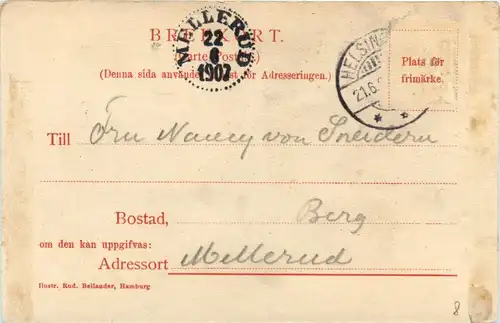 BREFKORT.
(Carte Postale)
(Denna sida användes endast för Adresseringen.)
MELLERUD
22
6
1907
HELSIN
21.6.
Plats för
frimärke.
Till Fru Nancy von Sneidern
Bostad, Berg
om den kan uppgifvas:
Adressort Mellerud
Illustr. Rud. Bellander, Hamburg
8